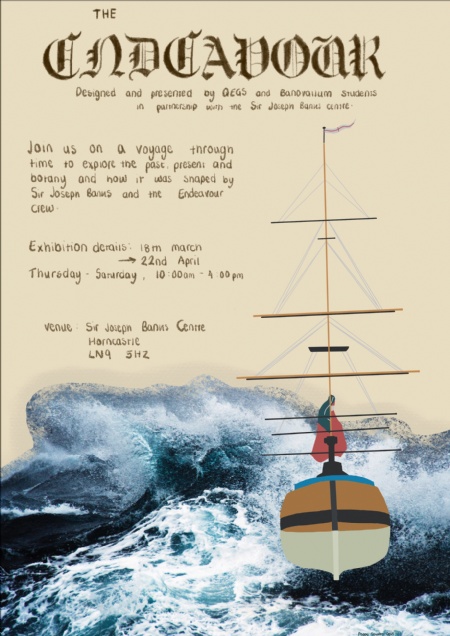 THE
ENDEAVOUR
Designed and presented by QEGS and Banovallum students
in partnership with the Sir Joseph Banks centre.
Join us on a voyage through
time to explore the past, present and
botany and how it was shaped by
Sir Joseph Banks and the Endeavour
crew.
Exhibition details: 18th march
→ 22nd April
Thursday - Saturday, 10:00am - 4:00pm
venue: Sir Joseph Banks Centre
Horncastle
LN9 5HZ